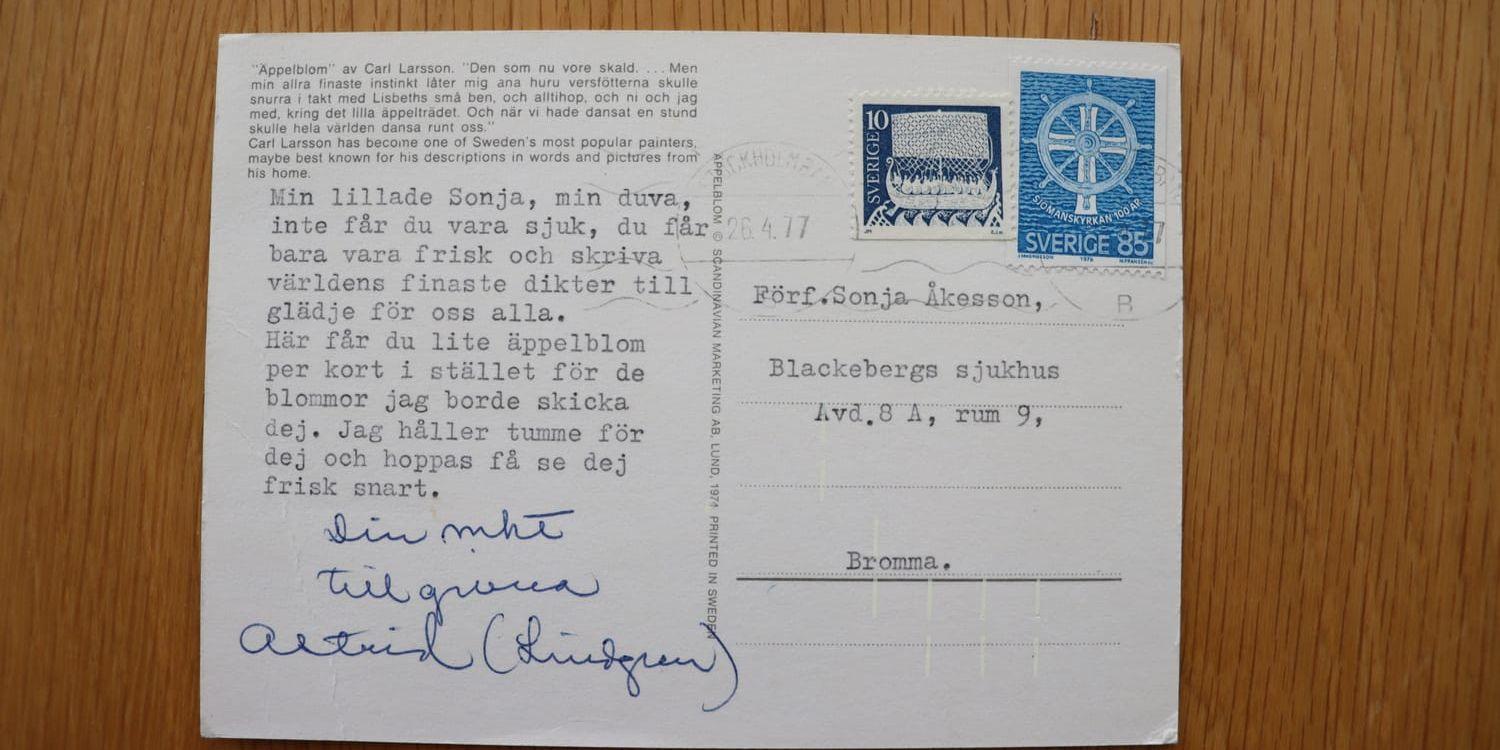 "Äppelblom" av Carl Larsson. "Den som nu vore skald. ... Men
min allra finaste instinkt låter mig ana huru versfötterna skulle
snurra i takt med Lisbeths små ben, och alltihop, och ni och jag
med, kring det lilla äppelträdet. Och när vi hade dansat en stund
skulle hela världen dansa runt oss."
Carl Larsson has become one of Sweden's most popular painters,
maybe best known for his descriptions in words and pictures from
his home.
Min lillade Sonja, min duva,
inte får du vara sjuk, du får
bara vara frisk och skriva
världens finaste dikter till
glädje för oss alla.
Här får du lite äppelblom
per kort i stället för de
blommor jag borde skicka
dej. Jag håller tumme för
dej och hoppas få se dej
frisk snart.
Din mkt
tillgivna
Astrid (Lindgren)
ÄPPELBLOM © SCANDINAVIAN MARKETING AB, LUND, 1974 PRINTED IN SWEDEN
26.4.77
SVERIGE 10
SJÖMANSKYRKAN 100 ÅR
SVERIGE 85
1976
7
B
Förf.Sonja Åkesson,
Blackebergs sjukhus
Avd.8 A, rum 9,
Bromma.